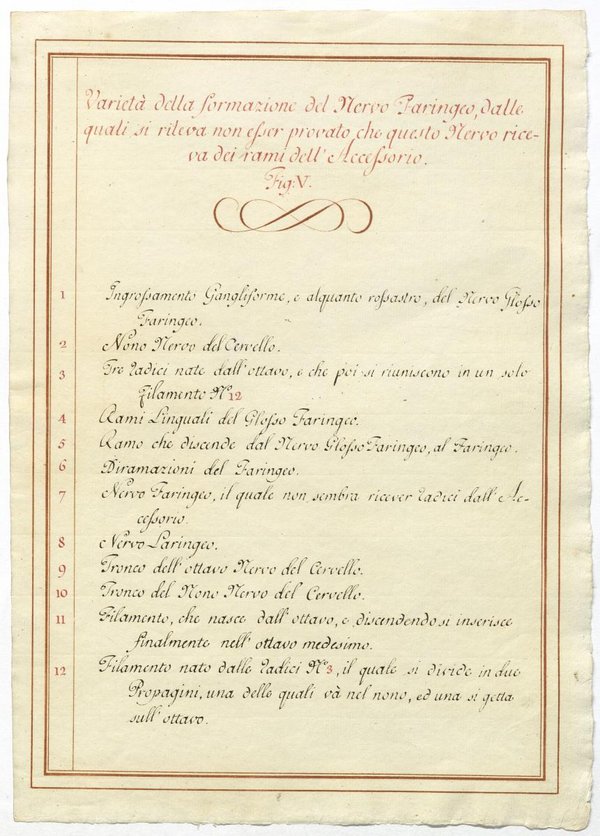 Varietà della formazione del Nervo Faringeo, dalle
quali si rileva non esser provato, che questo Nervo rice-
va dei rami dell'Accessorio.
Fig: V.
1 Ingrossamento Gangliforme, e alquanto rossastro, del Nervo Glosso
Faringeo.
2 Nono Nervo del Cervello.
3 Tre radici nate dall'ottavo, e che poi si riuniscono in un solo
filamento N.º 12
4 Rami Linguali del Glosso Faringeo.
5 Ramo che discende dal Nervo Glosso Faringeo, al Faringeo.
6 Diramazioni del Faringeo.
7 Nervo Faringeo, il quale non sembra ricever radici dall'Ac-
cessorio.
8 Nervo Laringeo.
9 Tronco dell'ottavo Nervo del Cervello.
10 Tronco del Nono Nervo del Cervello.
11 Filamento, che nasce dall'ottavo, e discendendo si inserisce
finalmente nell'ottavo medesimo.
12 Filamento nato dalle radici N.º 3, il quale si divide in due
Propagini, una delle quali và nel nono, ed una si getta
sull'ottavo.